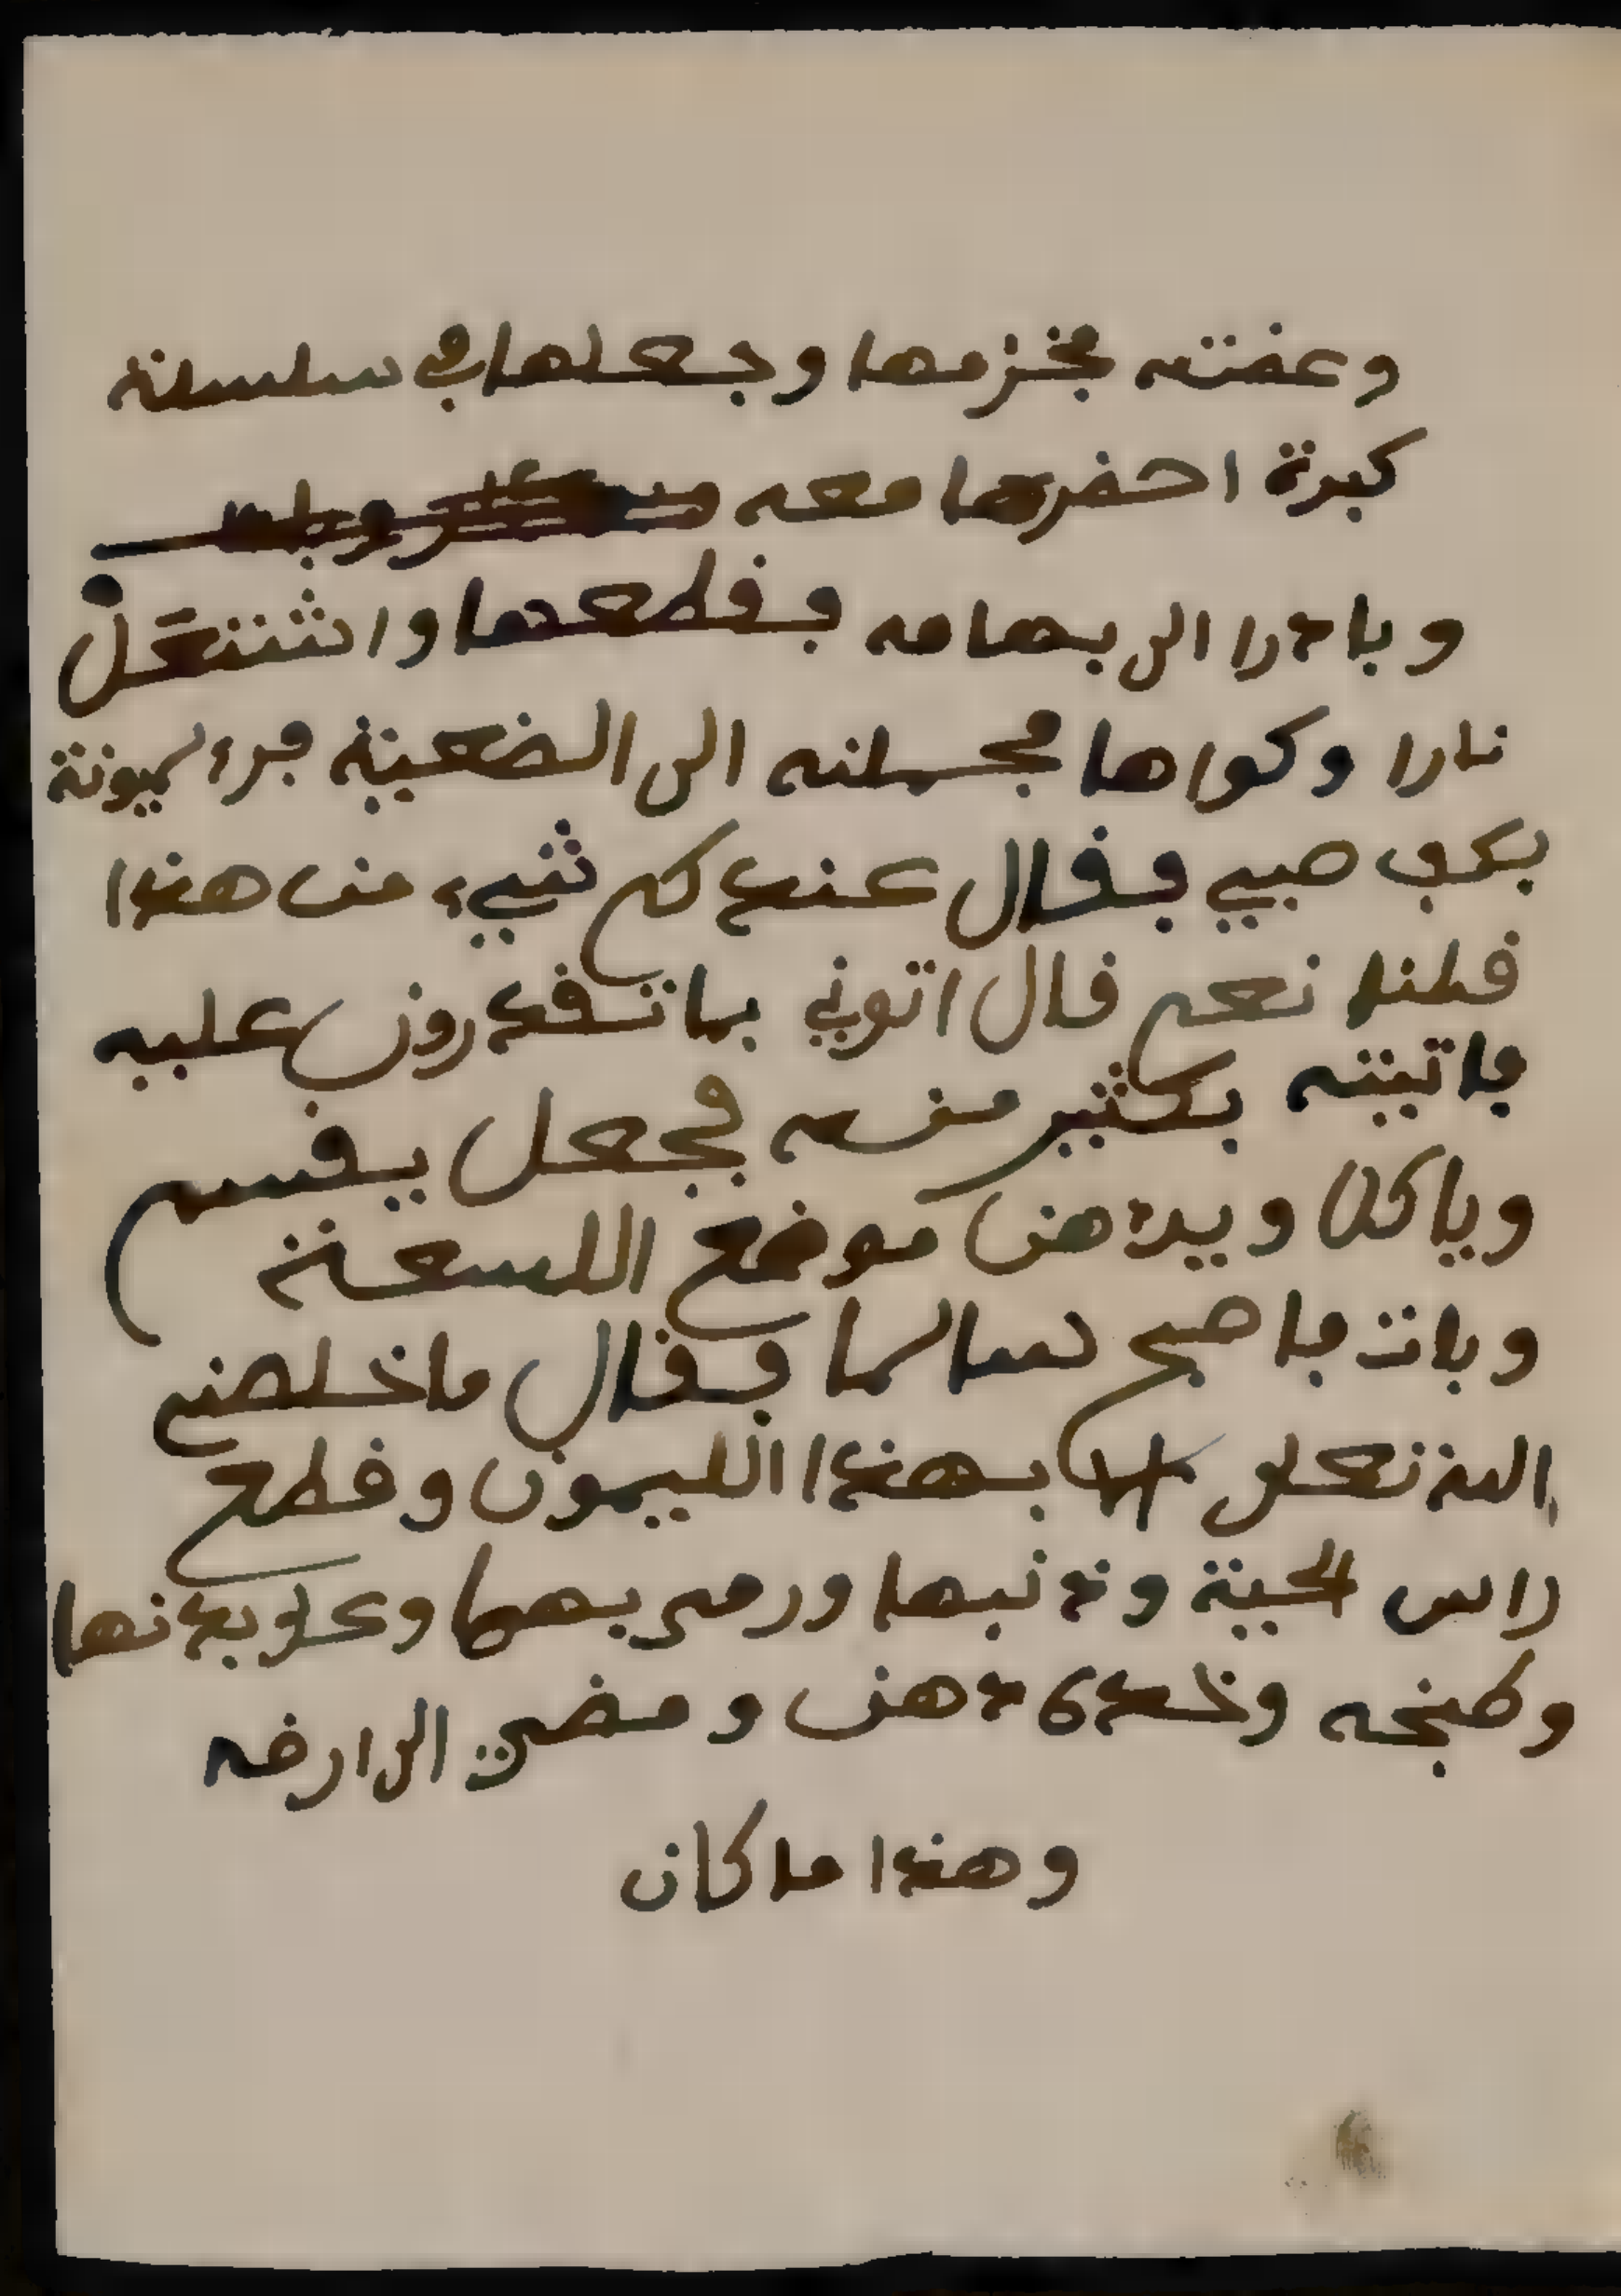 وعضته فخزمها وجعلها في سلسلة
كبرة احضرها معه
وبادرا الى بهامه فقطعها واشتعل
نارا وكواها فحملته الى الضعينة فرء ليمونة
بكف صبي فقال عندكم شيء من هذا
قلنا نعم قال اتوني بما تقدرون عليه
فاتيته بكثير منه فجعل يقسم
وياكل ويدهن موضع اللسعة
وبات فاصبح سالما فقال ما خلصني
الله تعلى الا بهذا الليمون وقطع
راس الحية وذنبها ورمى بهما وعلى بدنها
وطبخه وخدى دهن ومضى الى ارضه
وهذا ما كان